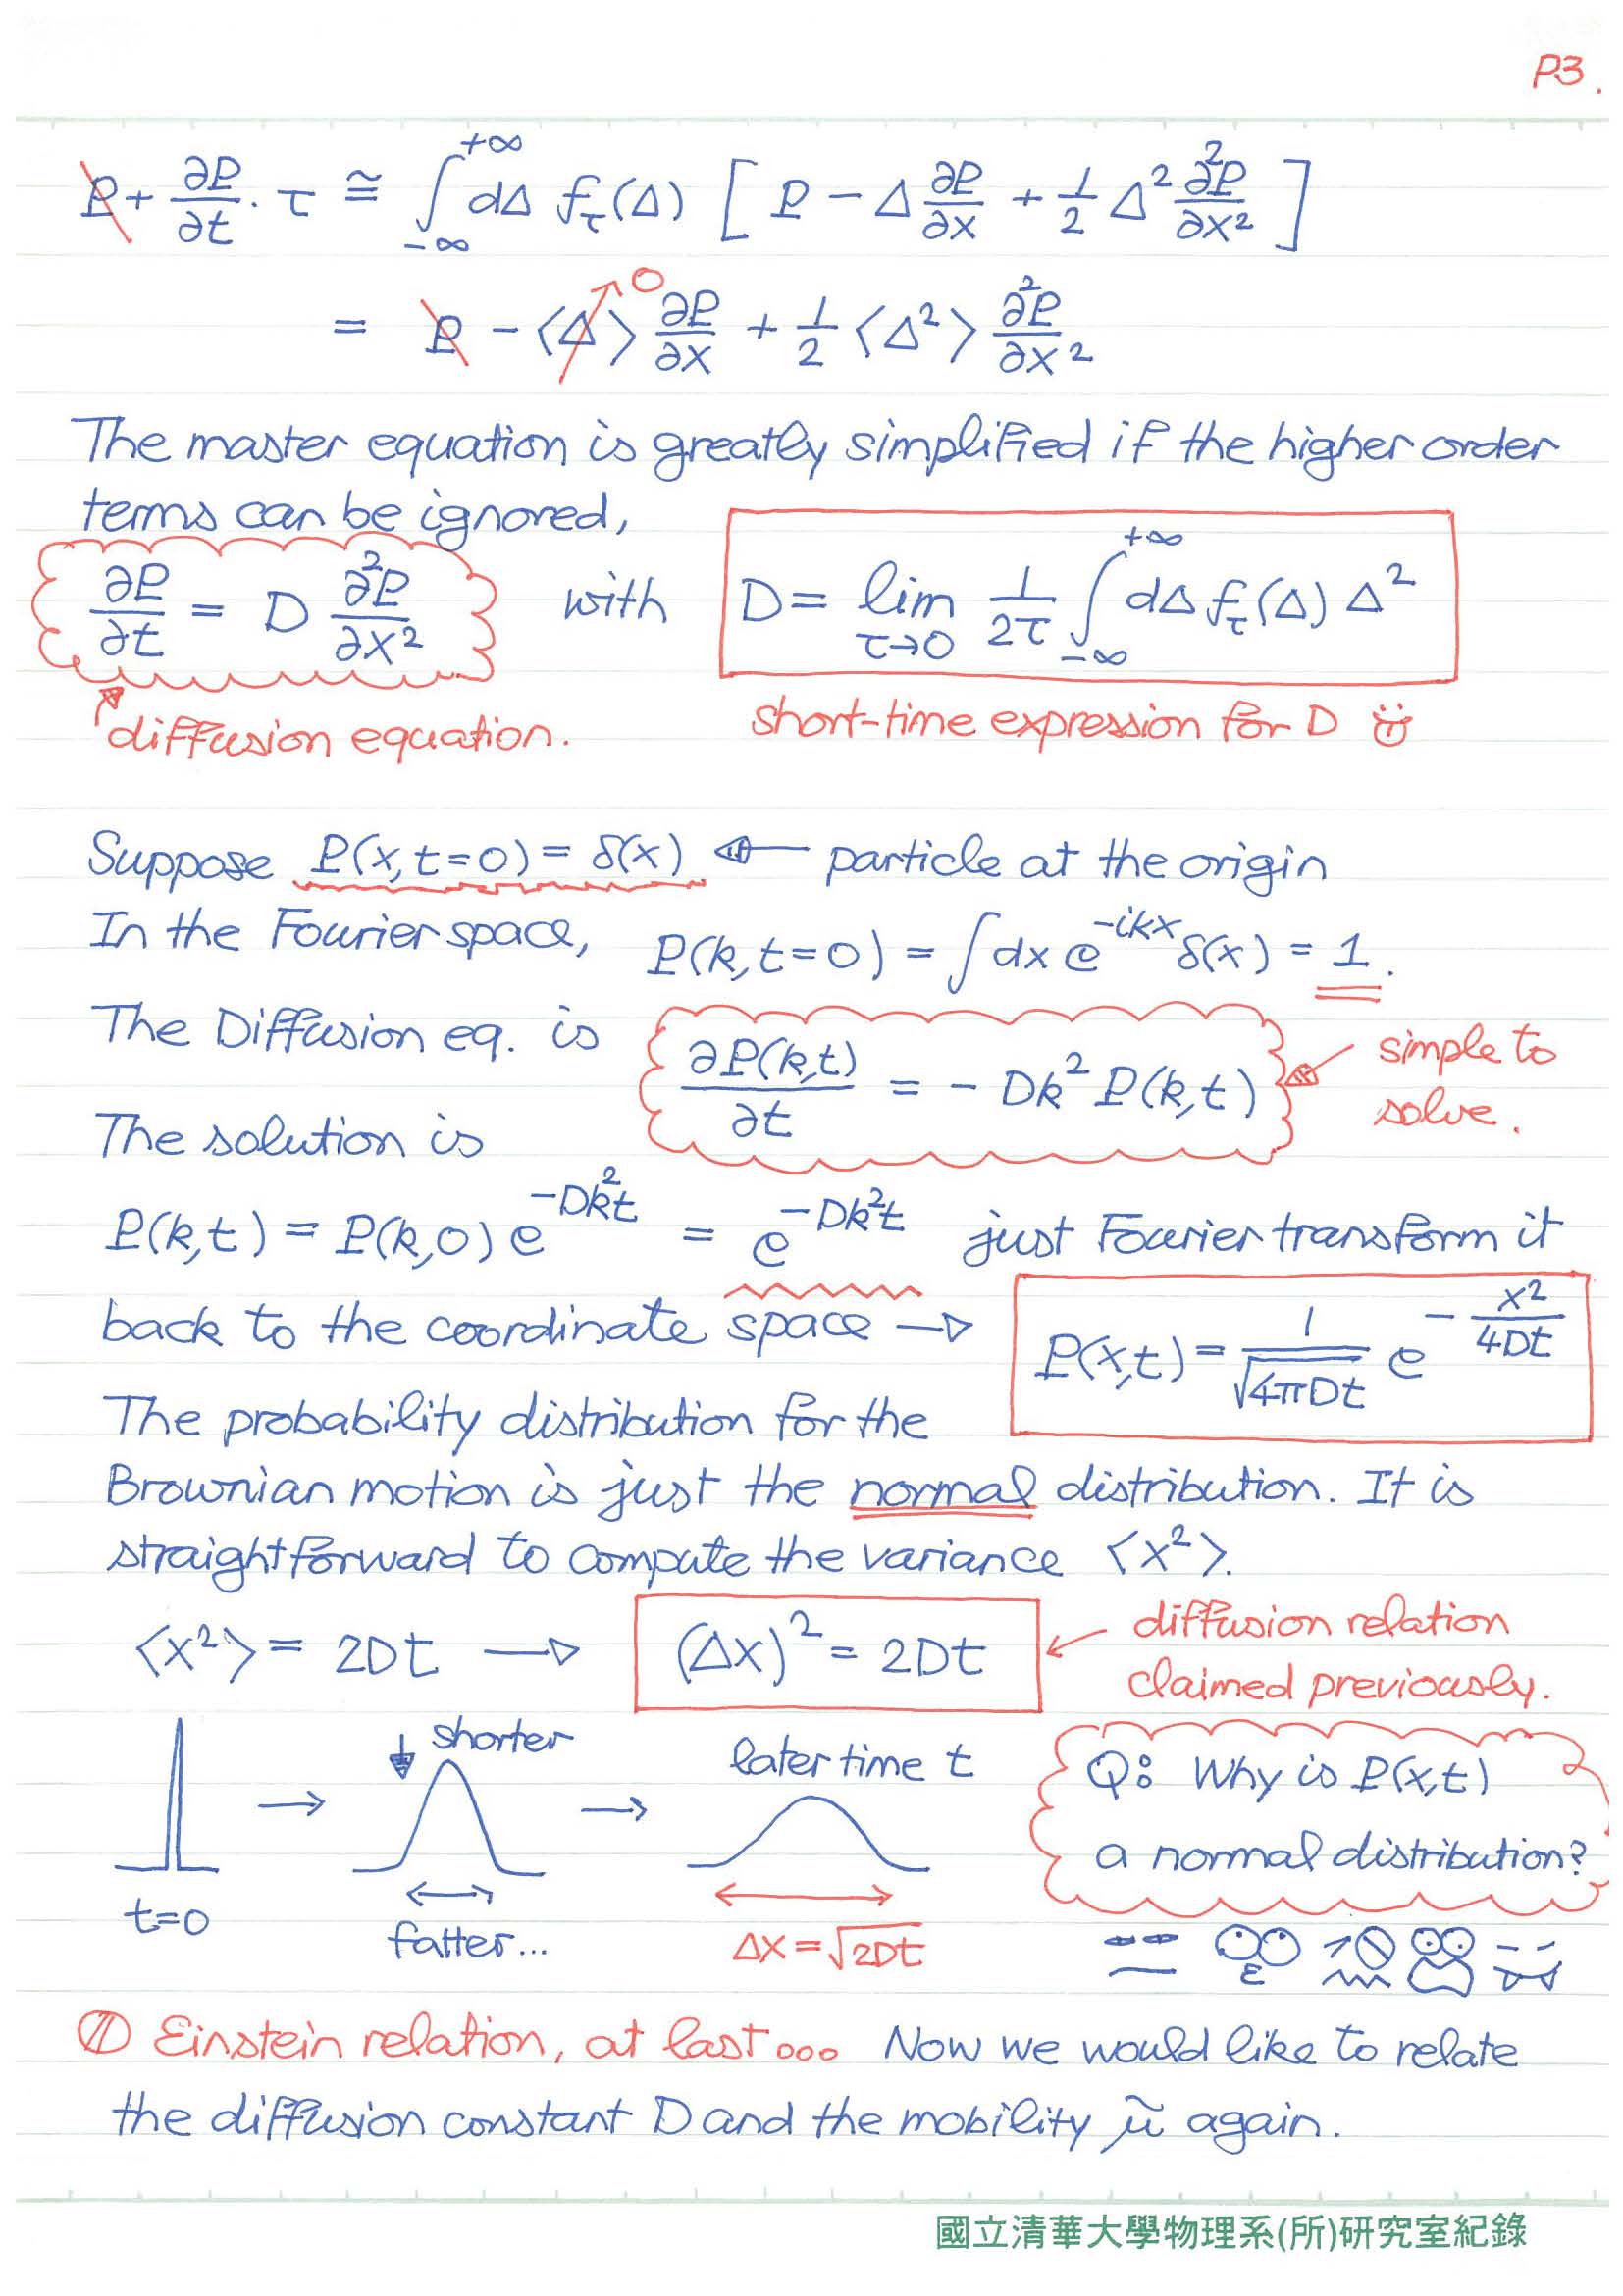 P3.
P + ∂P/∂t · τ ≅ ∫_{-∞}^{+∞} dΔ f_τ(Δ) [ P - Δ ∂P/∂x + 1/2 Δ² ∂²P/∂x² ]
= P - ⟨Δ⟩ ∂P/∂x + 1/2 ⟨Δ²⟩ ∂²P/∂x²
0
The master equation is greatly simplified if the higher order
terms can be ignored,
∂P/∂t = D ∂²P/∂x² with D = lim_{τ→0} 1/2τ ∫_{-∞}^{+∞} dΔ f_τ(Δ) Δ²
diffusion equation. short-time expression for D
Suppose P(x,t=0) = δ(x) ← particle at the origin
In the Fourier space, P(k,t=0) = ∫dx e^{-ikx} δ(x) = 1.
The Diffusion eq. is ∂P(k,t)/∂t = - Dk² P(k,t) simple to
solve.
The solution is
P(k,t) = P(k,0) e^{-Dk²t} = e^{-Dk²t} just Fourier transform it
back to the coordinate space → P(x,t) = 1/√4πDt e^{-x²/4Dt}
The probability distribution for the
Brownian motion is just the normal distribution. It is
straightforward to compute the variance ⟨x²⟩.
⟨x²⟩ = 2Dt → (Δx)² = 2Dt ← diffusion relation
claimed previously.
↓ shorter
later time t
Q: Why is P(x,t)
a normal distribution?
→ →
t=0
fatter...
Δx = √2Dt
① Einstein relation, at last... Now we would like to relate
the diffusion constant D and the mobility μ̃ again.
國立清華大學物理系(所)研究室紀錄